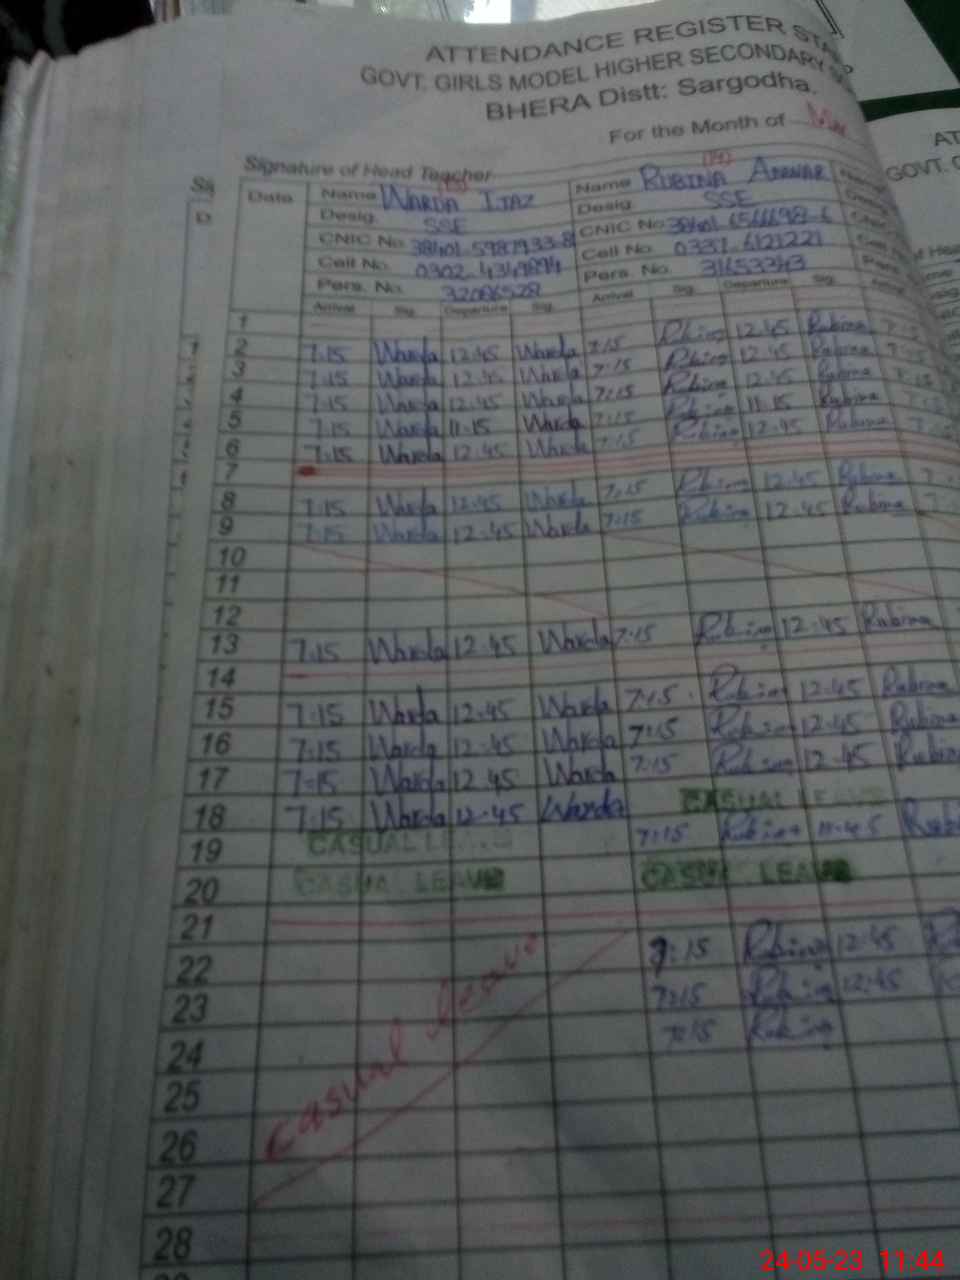 ATTENDANCE REGISTER
GOVT. GIRLS MODEL HIGHER SECONDARY
BHERA Distt: Sargodha.
For the Month of
Signature of Head Teacher
Date Name WARDA IJAZ Name RUBINA ANWAR
Desig. SSE Desig. SSE
CNIC No. CNIC No.
Cell No. 0302-4349894 Cell No. 0337-6121221
Pers. No. 32086528 Pers. No. 31653343
Arrival Sig. Departure Sig. Arrival Sig. Departure Sig.
1
2 7:15 Warda 12:45 Warda 7:15 Rubina 12:45 Rubina
3 7:15 Warda 12:45 Warda 7:15 Rubina 12:45 Rubina
4 7:15 Warda 12:45 Warda 7:15 Rubina 12:45 Rubina
5 7:15 Warda 11:15 Warda 7:15 Rubina 11:15 Rubina
6 7:15 Warda 12:45 Warda 7:15 Rubina 12:45 Rubina
7
8 7:15 Warda 12:45 Warda 7:15 Rubina 12:45 Rubina
9 7:15 Warda 12:45 Warda 7:15 Rubina 12:45 Rubina
10
11
12
13 7:15 Warda 12:45 Warda 7:15 Rubina 12:45 Rubina
14
15 7:15 Warda 12:45 Warda 7:15 Rubina 12:45 Rubina
16 7:15 Warda 12:45 Warda 7:15 Rubina 12:45 Rubina
17 7:15 Warda 12:45 Warda 7:15 Rubina 12:45 Rubina
18 7:15 Warda 12:45 Warda CASUAL LEAVE
19 CASUAL LEAVE 7:15 Rubina 11:45
20 CASUAL LEAVE CASUAL LEAVE
21
22 7:15 Rubina 12:45
23 7:15 Rubina 12:45
24 7:15 Rubina
casual leave
25
26
27
28
24-05-23 11:44